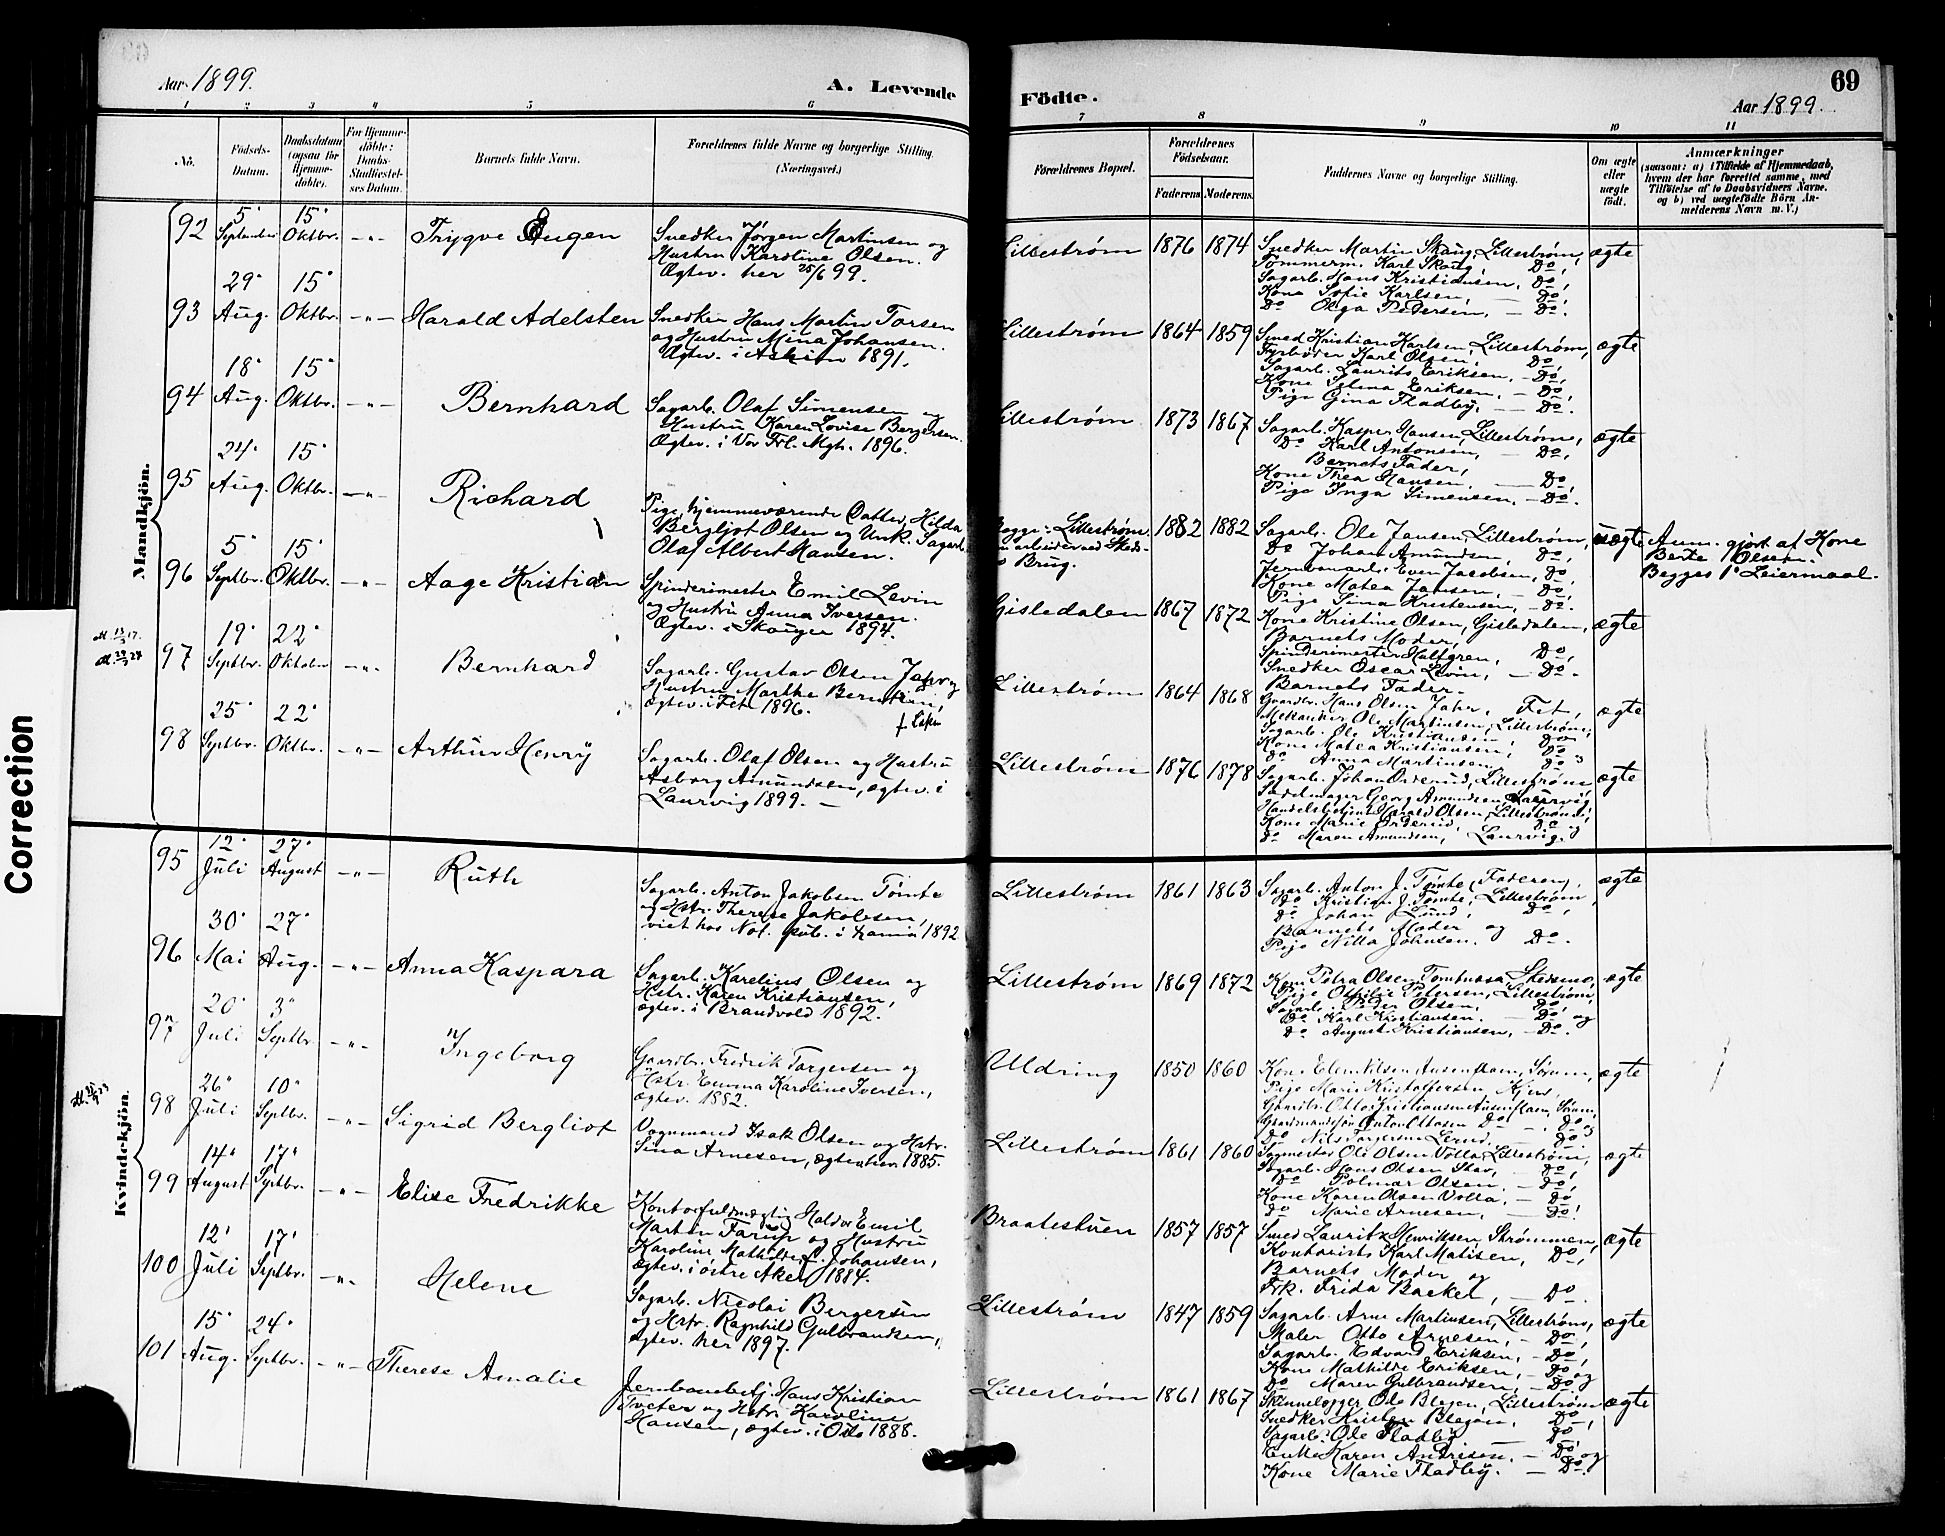 Aar 1899.
A. Levende
Födte.
69
Aar 1899.
1 2 3 4 5 6 7 8 9 10 11
No.
Födsels-Datum.
Daabsdatum (ogsaa for Hjemmedöbte).
For Hjemmedöbte: Daabs-Stadfæstelses Datum.
Barnets fulde Navn.
Forældrenes fulde Navne og borgerlige Stilling.
(Næringsvei.)
Forældrenes Bopæl.
Forældrenes Födselsaar.
Faderens
Moderens.
Faddernes Navne og borgerlige Stilling.
Om ægte eller uægte födt.
Anmærkninger
(saasom: a) i Tilfælde af Hjemmedaab,
hvem der har forrettet samme, med
Tilföielse af to Daabsvidners Navne,
og b) ved uægtefödte Börn Anmelderens Navn m. V.)
Mandkjön.
92 5' September 15' Oktbr. -"- Trygve Eugen
Snedker Jørgen Martinsen og
Hustru Karoline Olsen.
Ægtev. her 25/6 99.
Lillestrøm 1876 1874
Snedker Martin Skaug, Lillestrøm,
Tømmerm. Karl Skaug, Do,
Sagarb. Hans Kristiansen, Do,
Kone Sofie Karlsen, — Do,
Do Olga Pedersen, — Do.
ægte
93 29' Aug. 15' Oktbr. -"- Harald Adelsten
Snedker Hans Martin Torsen
og Hustru Mina Johansen.
Ægtev. i Askim 1891.
Lillestrøm 1864 1859
Smed Kristian Karlsen, Lillestrøm,
Fyrbøder Karl Olsen, Do,
Sagarb. Laurits Eriksen, — Do,
Kone Selma Eriksen, — Do,
Pige Gina Fladby, — Do.
ægte
94 18' Aug. 15' Oktbr. -"- Bernhard
Sagarb. Olaf Simensen og
Hustru Karen Lovise Bergersen.
Ægtev. i Vor Frl. Mgh. 1896.
Lillestrøm 1873 1867
Sagarb. Kasper Hansen, Lillestrøm,
Do Karl Antonsen, — Do,
Barnets Fader,
Kone Thea Hansen, — Do,
Pige Inga Simensen, — Do.
ægte
95 24' Aug. 15' Oktbr. -"- Richard
Pige, hjemmeværende Datter, Hilda
Bergljot Olsen og Unk. Sagarb.
Olaf Albert Hansen.
Begge: Lillestrøm.
Brug.
1882 1882
Sagarb. Ole Jansen, Lillestrøm,
Do Johan Amundsen Do,
Jernbanearb. Even Jacobsen, Do,
Kone Matea Jansen, — Do,
Pige Sina Kristensen, — Do.
uægte
Anm. gjort af Kone
Berte Olsen.
Begges 1' Leiermaal.
96 5' Septbr. 15' Oktbr. -"- Aage Kristian
Spinderimester Emil Levin
og Hustru Anna Iversen.
Ægtev. i Skouger 1894.
Gisledalen 1867 1872
Kone Kristine Olsen, Gisledalen,
Barnets Moder,
Spinderimester Halfgren, Do,
Snedker Oscar Levin, — Do.
Barnets Fader.
ægte
97 19' Septbr. 22' Oktober -"- Bernhard
Sagarb. Gustav Olsen Jahr og
Hustru Marthe Berntsen,
ægtev. i Fet 1896.
Lillestrøm 1864 1868
Gaardbr. Hans Olsen Jahr, Fet,
Mekaniker Ole Martinsen, Lillestrøm,
Sagarb. Ole Kristiansen, Do
Kone Matea Kristiansen, Do
Do Anna Martinsen, Do
ægte
98 25' Septbr. 22' Oktbr. -"- Arthur Henry
Sagarb. Olaf Olsen og Hustru
Asborg Amundsen, ægtev. i
Laurvig 1899. —
Lillestrøm 1876 1878
Sagarb. Johan Orderud, Lillestrøm,
Sadelmager Georg Amundsen, Laurvig,
Handelsbetjent Harald Olsen, Lillestrøm,
Kone Marie Orderud, Do og
Do Maren Amundsen, Laurvig.
ægte
Kvindekjön.
95 12' Juli 27' August -"- Ruth
Sagarb. Anton Jakobsen Tømte
og Hstr. Therese Jakobsen,
viet hos Not. publ. i 1892.
Lillestrøm 1861 1863
Sagarb. Anton J. Tømte (Faderen),
Do Kristian J. Tømte, Lillestrøm,
Do Johan Lund, Do,
Barnets Moder og
Pige Nilla Johnsen. Do.
ægte
96 30' Mai 27' Aug. -"- Anna Kaspara
Sagarb. Karelius Olsen og
Hstr. Karen Kristiansen,
ægtev. i Brandvold 1892.
Lillestrøm 1869 1872
Kone Petra Olsen, Skedsmo,
Pige Othilie Petersen, Lillestrøm,
Sagarb. Peder Olsen, Do,
Do Karl Kristiansen. — Do og
Do August Kristiansen, — Do.
ægte
97 20' Juli 3' Septbr -"- Ingeborg
Gaardbr. Fredrik Torgersen og
Hstr. Emma Karoline Iversen,
ægtev. 1882.
Uldring 1850 1860
Kone Elen Nilsen Ausenflaen, Sørum,
Pige Marie Kristoffersen
Gaardbr. Otto Kristiansen Ausenflaen, Sørum,
Gaardmandssøn Anton Ottosen Do —, Do og
Do Nils Torgersen Lerud. — Do
ægte
98 26' Juli 10' Septbr. -"- Sigrid Bergliot
Vognmand Isak Olsen og Hstr.
Sina Arnesen, ægtev. her 1885.
Lillestrøm 1861 1860
Sagmester Ole Olsen Volla, Lillestrøm,
Sagarb. Hans Olsen Do,
Do Polmar Olsen. — Do,
Kone Karen Olsen Volla, — Do
Do Marie Arnesen, — Do.
ægte
99 14' August 17' Septbr. -"- Elise Fredrikke
Kontorfuldmægtig Haldor Emil
Martin Farup og Hustru
Karoline Mathilde f. Johansen,
ægtev. i østre Aker 1884.
Braatestuen 1857 1857
Smed Lauritz Henriksen, Strømmen,
Kontorist Karl Matisen, Do,
Barnets Moder og
Frk. Frida Backer, — Do.
ægte
100 12' Juli 17' Septbr. -"- Helene
Sagarb. Nicolai Bergersen
og Hstr. Ragnhild Gulbrandsen,
ægtev. her 1897.
Lillestrøm 1847 1859
Sagarb. Arne Martinsen, Lillestrøm,
Maler Otto Arnesen, — Do,
Sagarb. Edvard Eriksen, — Do,
Kone Mathilde Eriksen, — Do og
Do Maren Gulbrandsen, — Do.
ægte
101 15' Aug. 24' Septbr. -"- Therese Amalie
Jernbanebetj. Hans Kristian
Tveter og Hstr. Karoline
Hansen, ægtev. i Oslo 1888.
Lillestrøm 1861 1867
Skinnelægger Ole Blegen, Lillestrøm
Snedker Kristen Blegen, Do,
Sagarb. Ole Fladby — Do,
Enke Karen Andrisen, — Do og
Kone Marie Fladby. — Do.
ægte
Correction